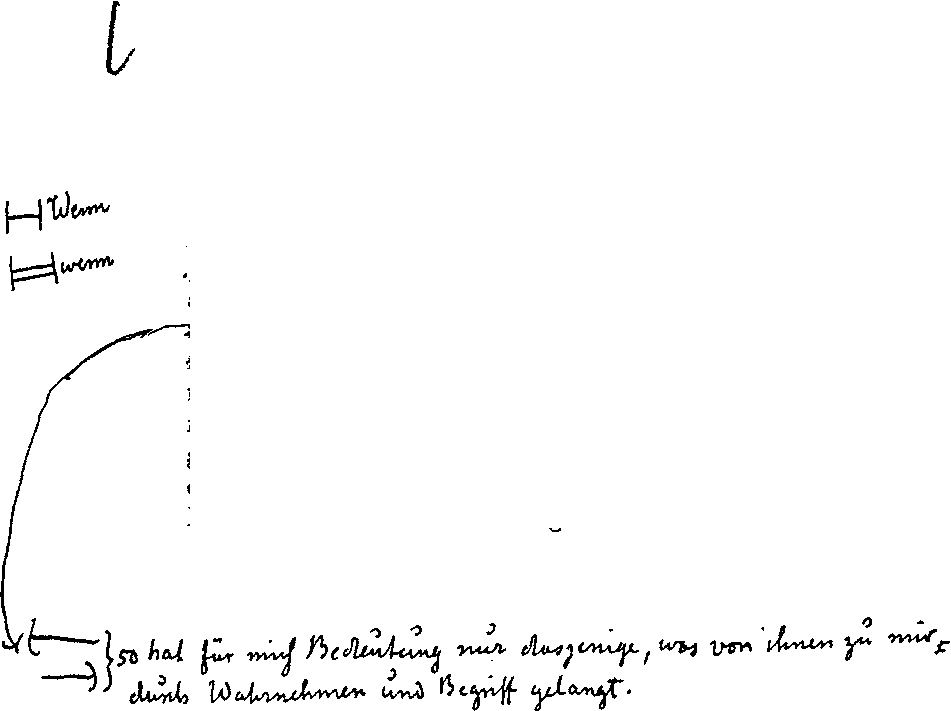 Wenn
wenn
so hat für mich Bedeutung nur dasjenige, was von ihnen zu mir
durch Wahrnehmen und Begriff gelangt.